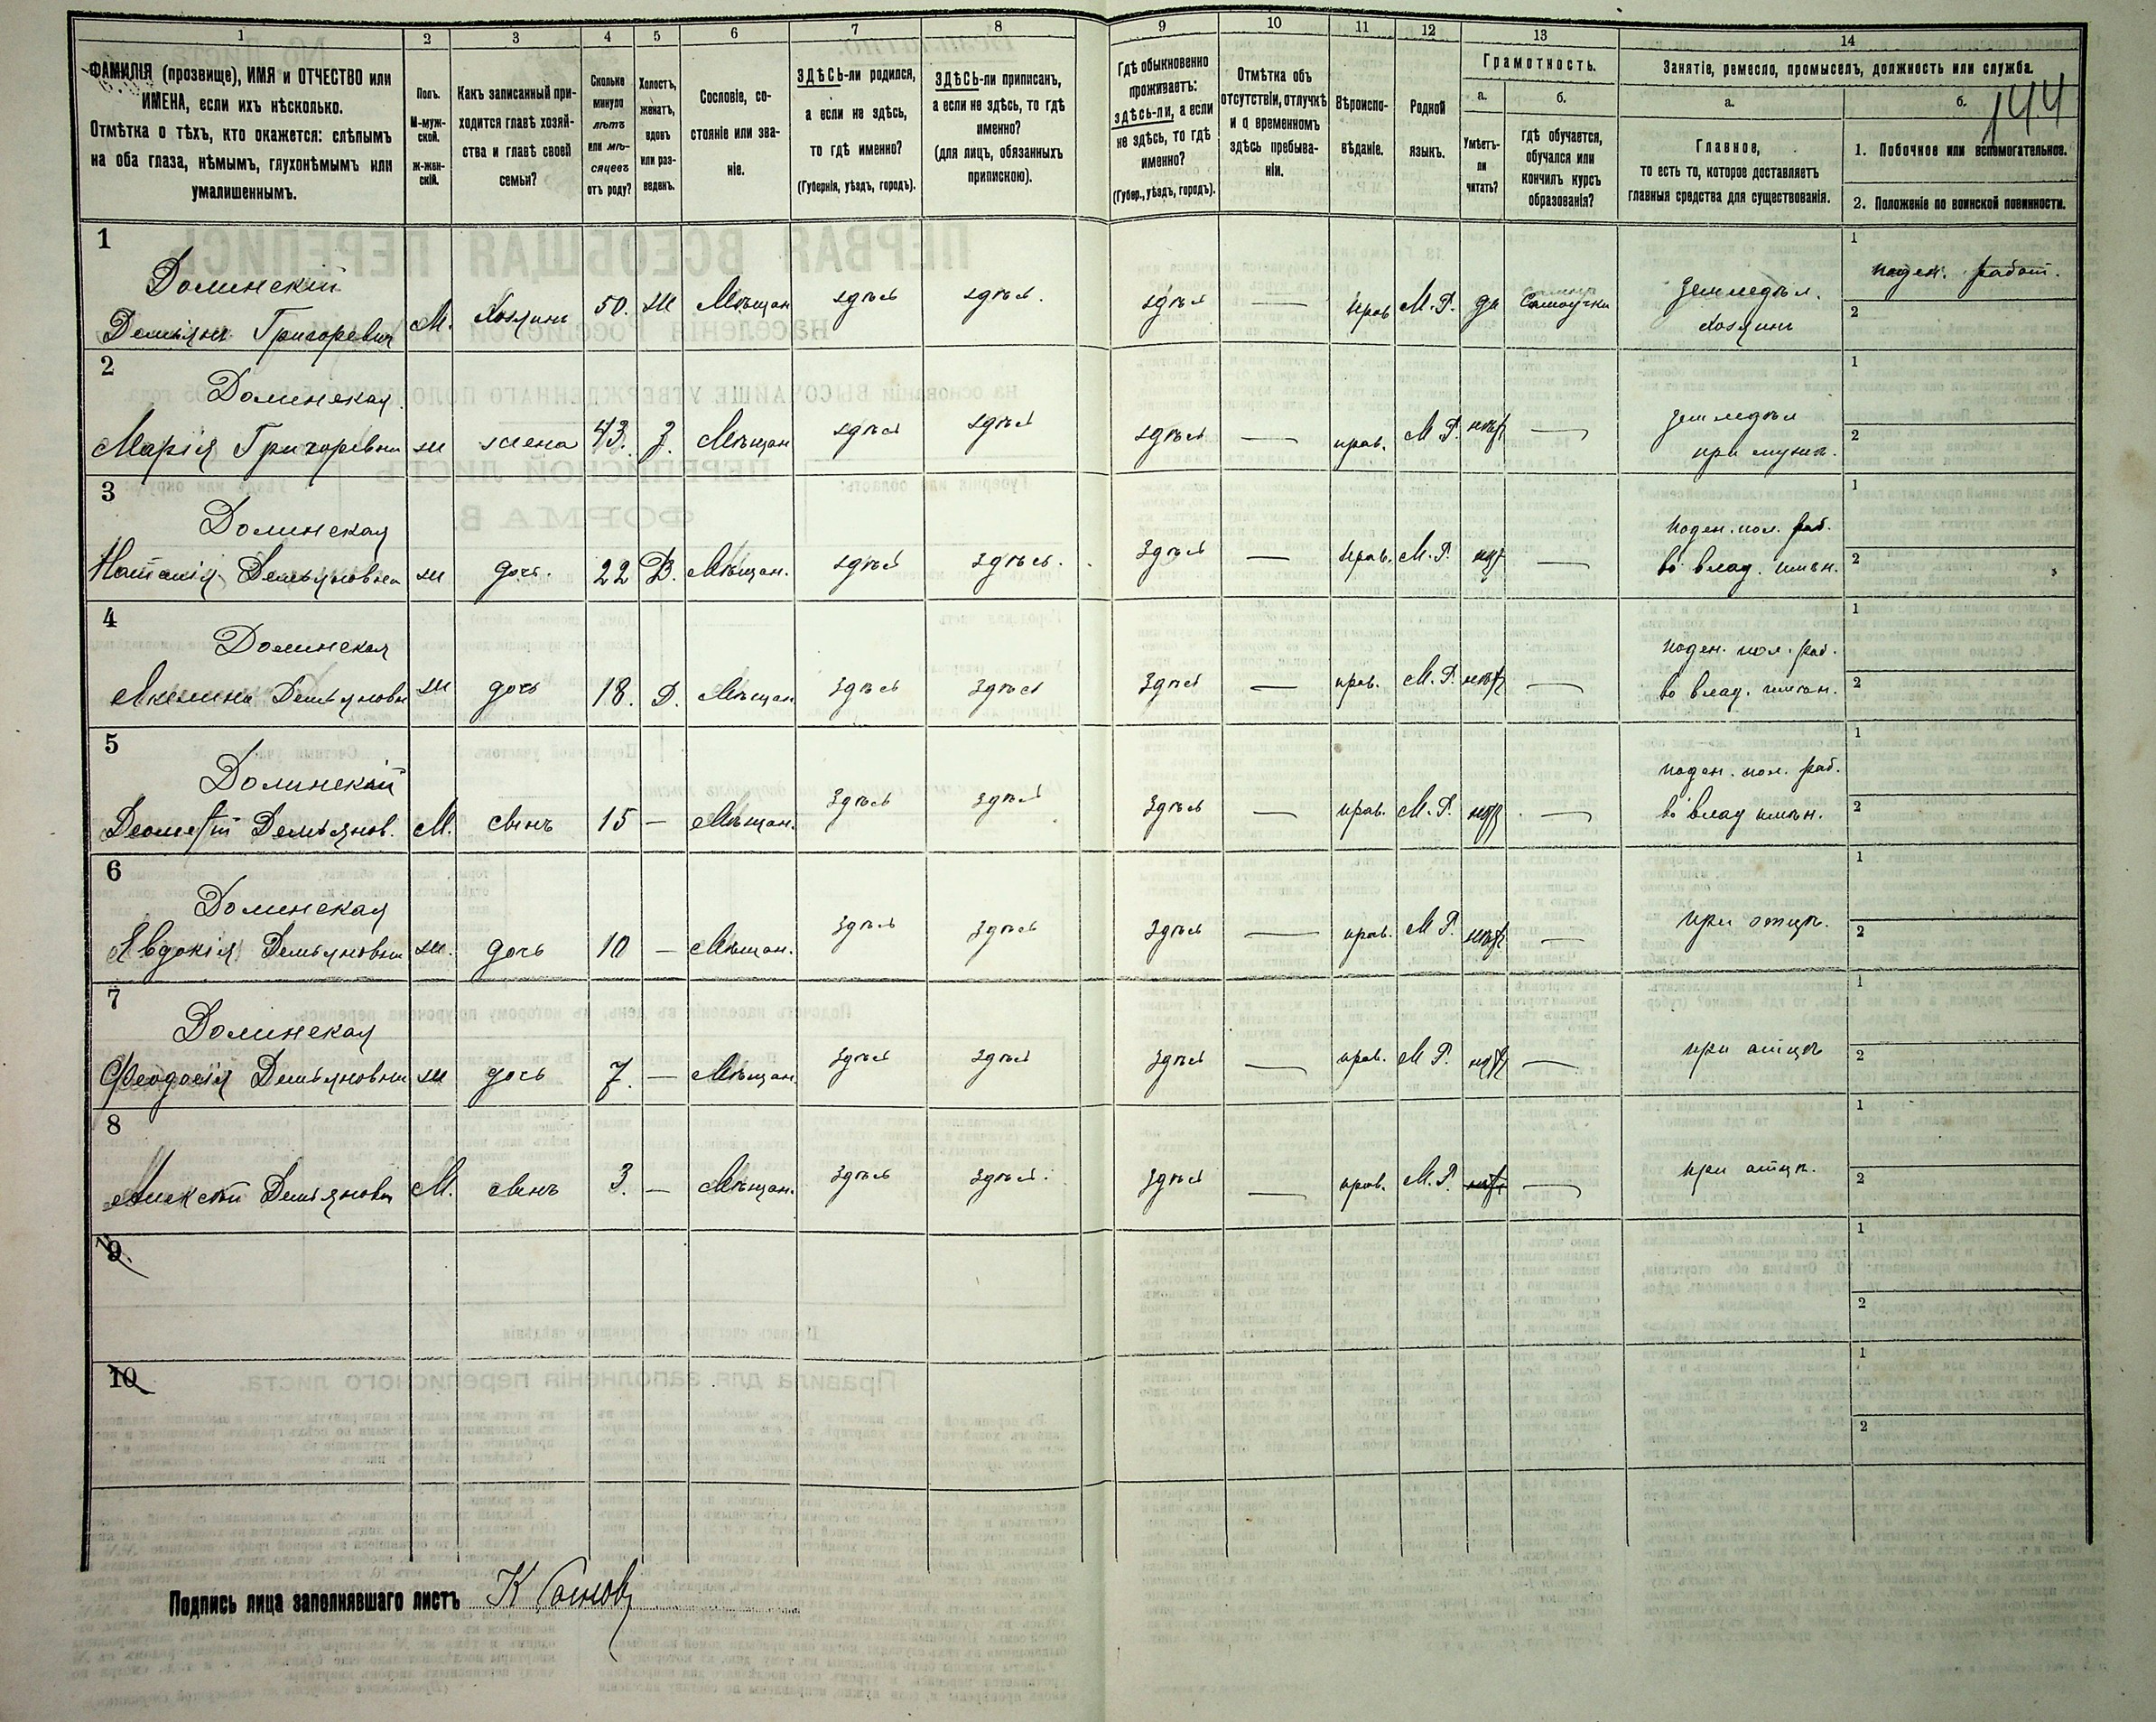 1 2 3 4 5 6 7 8 9 10 11 12 13 14
ФАМИЛІЯ (прозвище), ИМЯ и ОТЧЕСТВО или
ИМЕНА, если ихъ нѣсколько.
Отмѣтка о тѣхъ, кто окажется: слѣпымъ
на оба глаза, нѣмымъ, глухонѣмымъ или
умалишеннымъ.
Полъ.
М-муж-
ской.
ж-жен-
скій.
Какъ записанный при-
ходится главѣ хозяй-
ства и главѣ своей
семьи?
Сколько
минуло
лѣтъ
или мѣ-
сяцевъ
отъ роду?
Холостъ,
женатъ,
вдовъ
или раз-
веденъ.
Сословіе, со-
стояніе или зва-
ніе.
ЗДѢСЬ-ли родился,
а если не здѣсь,
то гдѣ именно?
(Губернія, уѣздъ, городъ).
ЗДѢСЬ-ли приписанъ,
а если не здѣсь, то гдѣ
именно?
(для лицъ, обязанныхъ
припискою).
Гдѣ обыкновенно
проживаетъ:
здѣсь-ли, а если
не здѣсь, то гдѣ
именно?
(Губер., уѣздъ, городъ).
Отмѣтка объ
отсутствіи, отлучкѣ
и о временномъ
здѣсь пребыва-
ніи.
Вѣроиспо-
вѣданіе.
Родной
языкъ.
Грамотность.
а.
Умѣетъ-
ли
читать?
б.
гдѣ обучается,
обучался или
кончилъ курсъ
образованія?
Занятіе, ремесло, промыселъ, должность или служба.
а.
Главное,
то есть то, которое доставляетъ
главныя средства для существованія.
б.
144
1. Побочное или вспомогательное.
2. Положеніе по воинской повинности.
1
Долинскій
Демьянъ Григоревич М. Хозяинъ 50. ж Мѣщан здѣсь здѣсь. здѣсь — прав М.Р. да Самоучка
земледѣл.
хозяинъ
1 поден. работ.
2
2
Долинская
Марія Григоревна ж жена 43. З. Мѣщан здѣсь здѣсь здѣсь — прав. М.Р. нѣт —
земледѣл
при мужѣ.
1
2
3
Долинская
Наталія Демьяновна ж дочь. 22 Д. Мѣщан. здѣсь здѣсь. здѣсь — прав. М.Р. нѣт —
поден. пол. раб.
во влад. имѣн.
1
2
4
Долинская
Акелина Демьяновн ж дочь 18. Д. Мѣщан здѣсь здѣсь здѣсь — прав. М.Р. нѣт —
поден. пол. раб.
во влад. имѣн.
1
2
5
Долинскій
Демьянов. М. сынъ 15 — Мѣщан. здѣсь здѣсь здѣсь — прав. М.Р. нѣт —
поден. пол. раб.
во влад имѣн.
1
2
6
Долинская
Явдокія Демьяновна ж. дочь 10 — Мѣщан. здѣсь здѣсь здѣсь — прав. М.Р. нѣт —
при отцѣ.
1
2
7
Долинская
Феодосія Демьяновна ж дочь 7. — Мѣщан. здѣсь здѣсь здѣсь — прав. М.Р. нѣт —
при отцѣ
1
2
8
Алексѣй Демьянови М. сынъ 3. — Мѣщан. здѣсь здѣсь. здѣсь — прав. М.Р. нѣт —
при отцѣ.
1
2
9
1
2
10
1
2
Подпись лица заполнявшаго листъ К